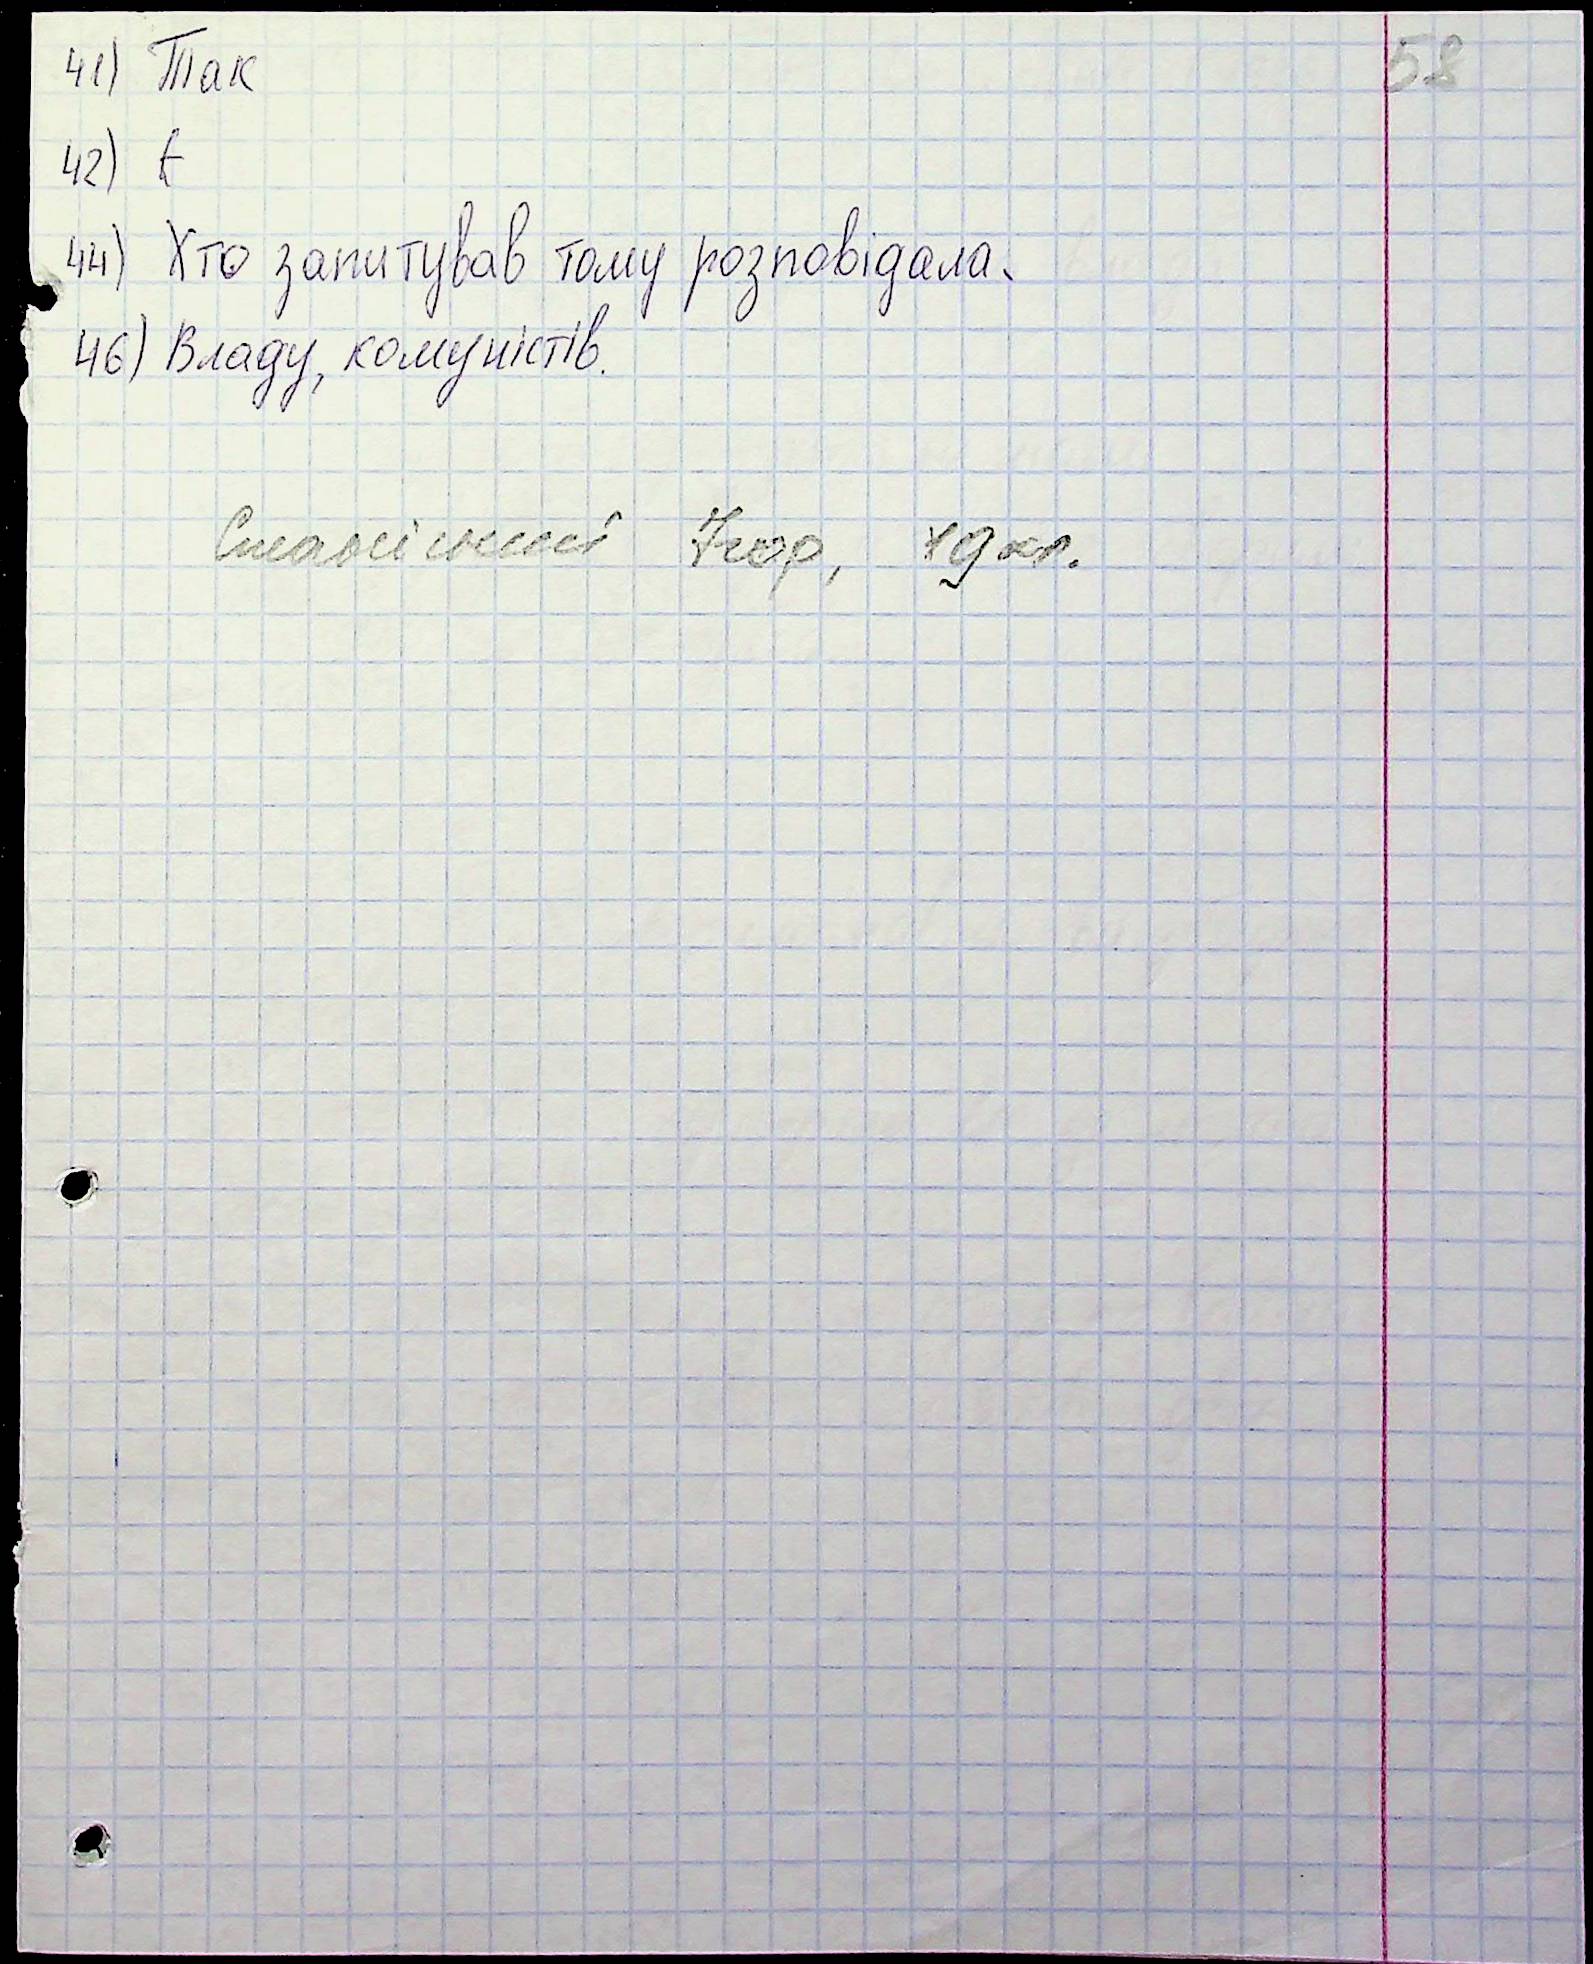 58
41) Так
42) Є
44) Хто запитував тому розповідала.
46) Владу, комуністів.
Ігор,